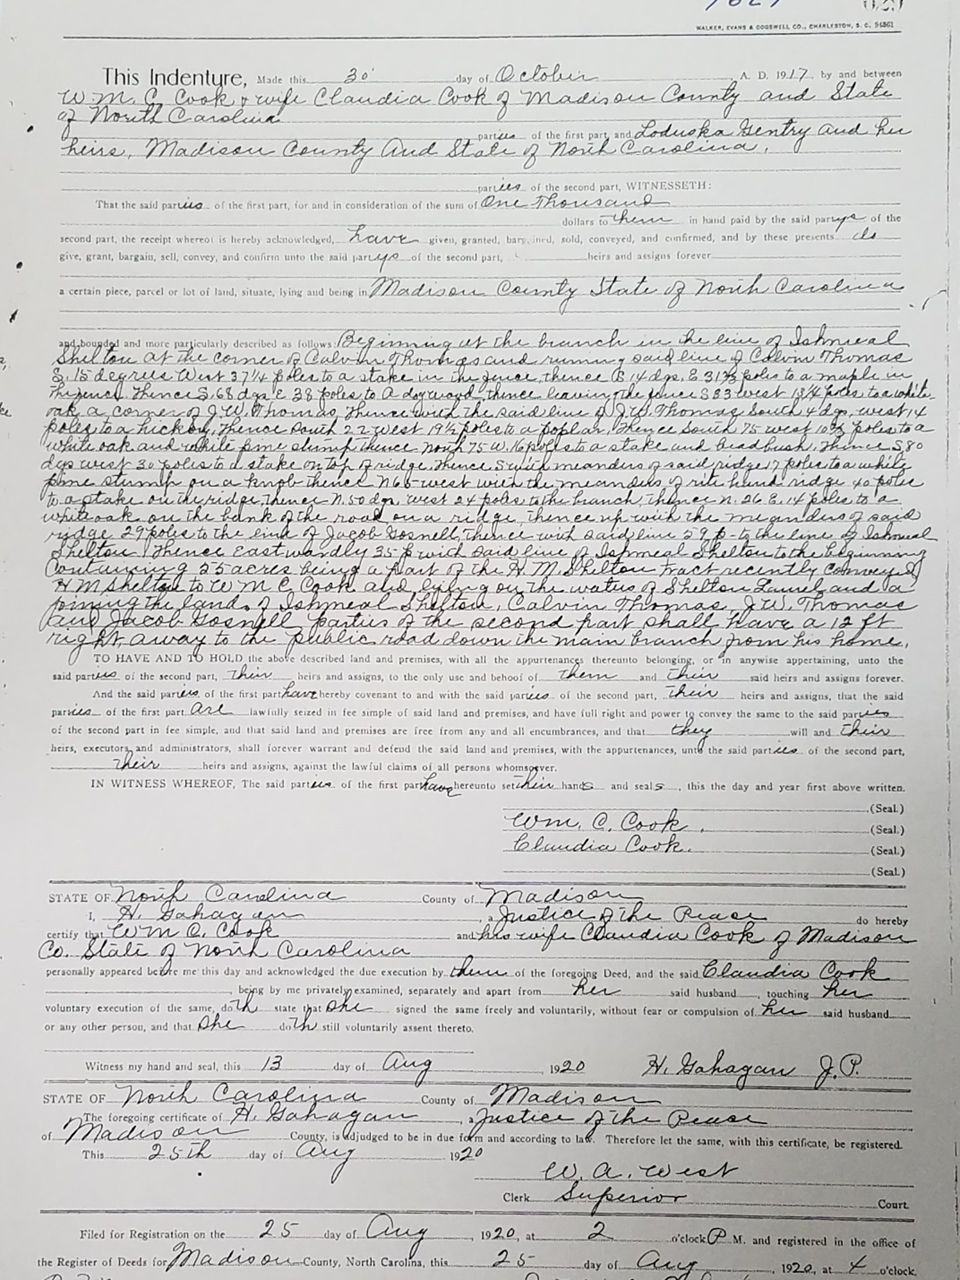 WALKER, EVANS & COGSWELL CO., CHARLESTON, S. C. 94861
This Indenture, Made this 30 day of October, A. D. 1917, by and between
W.M. C. Cook & wife Claudia Cook of Madison County and State
of North Carolina
parties of the first part, and Loduska Gentry and her
heirs, Madison County And State of North Carolina,
parties of the second part, WITNESSETH:
That the said parties of the first part, for and in consideration of the sum of One Thousand
dollars to them in hand paid by the said partys of the
second part, the receipt whereof is hereby acknowledged, have given, granted, bargained, sold, conveyed, and confirmed, and by these presents do
give, grant, bargain, sell, convey, and confirm unto the said partys of the second part, heirs and assigns forever
a certain piece, parcel or lot of land, situate, lying and being in Madison County State of North Carolina
and bounded and more particularly described as follows: Beginning at the branch in the line of Ishmeal
Shelton at the corner of Calvin Thomas and running said line of Calvin Thomas
S. 15 degrees West 37 1/4 poles to a stake in the fence, thence 14 dgs. E. 31 1/2 poles to a maple in
the fence. Thence S. 68 dgs. E 38 poles to a dogwood, thence leaving the fence S 83 west 13 1/4 poles to a white
oak a corner of J. W. Thomas, Thence with the said line of J. W. Thomas South 4 dgs, west 14
poles to a hickory, thence South 22 West 19 1/2 poles to a poplar, Thence South 75 west 10 1/2 poles to a
white oak and white pine stump thence North 75 W. 16 poles to a stake and bush, Thence S 80
dgs west 30 poles to a stake on top of ridge, thence S with meanders of said ridge 17 poles to a white
pine stump on a knob thence N 65 west with the meanders of rite hand ridge 40 poles
to a stake on the ridge thence N. 50 dgs. west 24 poles to the branch, thence N. 26 E. 14 poles to a
white oak on the bank of the road on a ridge, thence up with the meanders of said
ridge 29 poles to the line of Jacob Gosnell, thence with said line 29 p. to the line of Ishmeal
Shelton, Thence Eastwardly 35 p with said line of Ishmeal Shelton to the beginning
Containing 25 acres being a part of the H. M. Shelton tract recently conveyed
H M Shelton to W M C Cook and lying on the waters of Shelton Laurel and a
joining the lands of Ishmeal Shelton, Calvin Thomas, J. W. Thomas
and Jacob Gosnell parties of the second part shall have a 12 ft
right, away to the public road down the main branch from his home.
TO HAVE AND TO HOLD the above described land and premises, with all the appurtenances thereunto belonging, or in anywise appertaining, unto the
said parties of the second part, their heirs and assigns, to the only use and behoof of them and their said heirs and assigns forever.
And the said parties of the first part have hereby covenant to and with the said parties of the second part, their heirs and assigns, that the said
parties of the first part are lawfully seized in fee simple of said land and premises, and have full right and power to convey the same to the said parties
of the second part in fee simple, and that said land and premises are free from any and all encumbrances, and that they will and their
heirs, executors and administrators, shall forever warrant and defend the said land and premises, with the appurtenances, unto the said parties of the second part,
their heirs and assigns, against the lawful claims of all persons whomsoever.
IN WITNESS WHEREOF, The said parties of the first part have hereunto set their hands and seals, this the day and year first above written.
(Seal.)
Wm. C. Cook. (Seal.)
Claudia Cook. (Seal.)
(Seal.)
STATE OF North Carolina County of Madison
I, H. Gahagan, a Justice of the Peace do hereby
certify that W M C. Cook and his wife Claudia Cook of Madison
Co. State of North Carolina
personally appeared before me this day and acknowledged the due execution by them of the foregoing Deed, and the said Claudia Cook
, being by me privately examined, separately and apart from her said husband, touching her
voluntary execution of the same, doth state that she signed the same freely and voluntarily, without fear or compulsion of her said husband
or any other person, and that she doth still voluntarily assent thereto.
Witness my hand and seal, this 13 day of Aug, 1920 H. Gahagan J. P.
STATE OF North Carolina County of Madison
The foregoing certificate of H. Gahagan, a Justice of the Peace
of Madison County, is adjudged to be in due form and according to law. Therefore let the same, with this certificate, be registered.
This 25th day of Aug 1920
W. A. West
Clerk Superior Court.
Filed for Registration on the 25 day of Aug 1920, at 2 o'clock P M. and registered in the office of
the Register of Deeds for Madison County, North Carolina, this 25 day of Aug, 1920, at 4 o'clock.